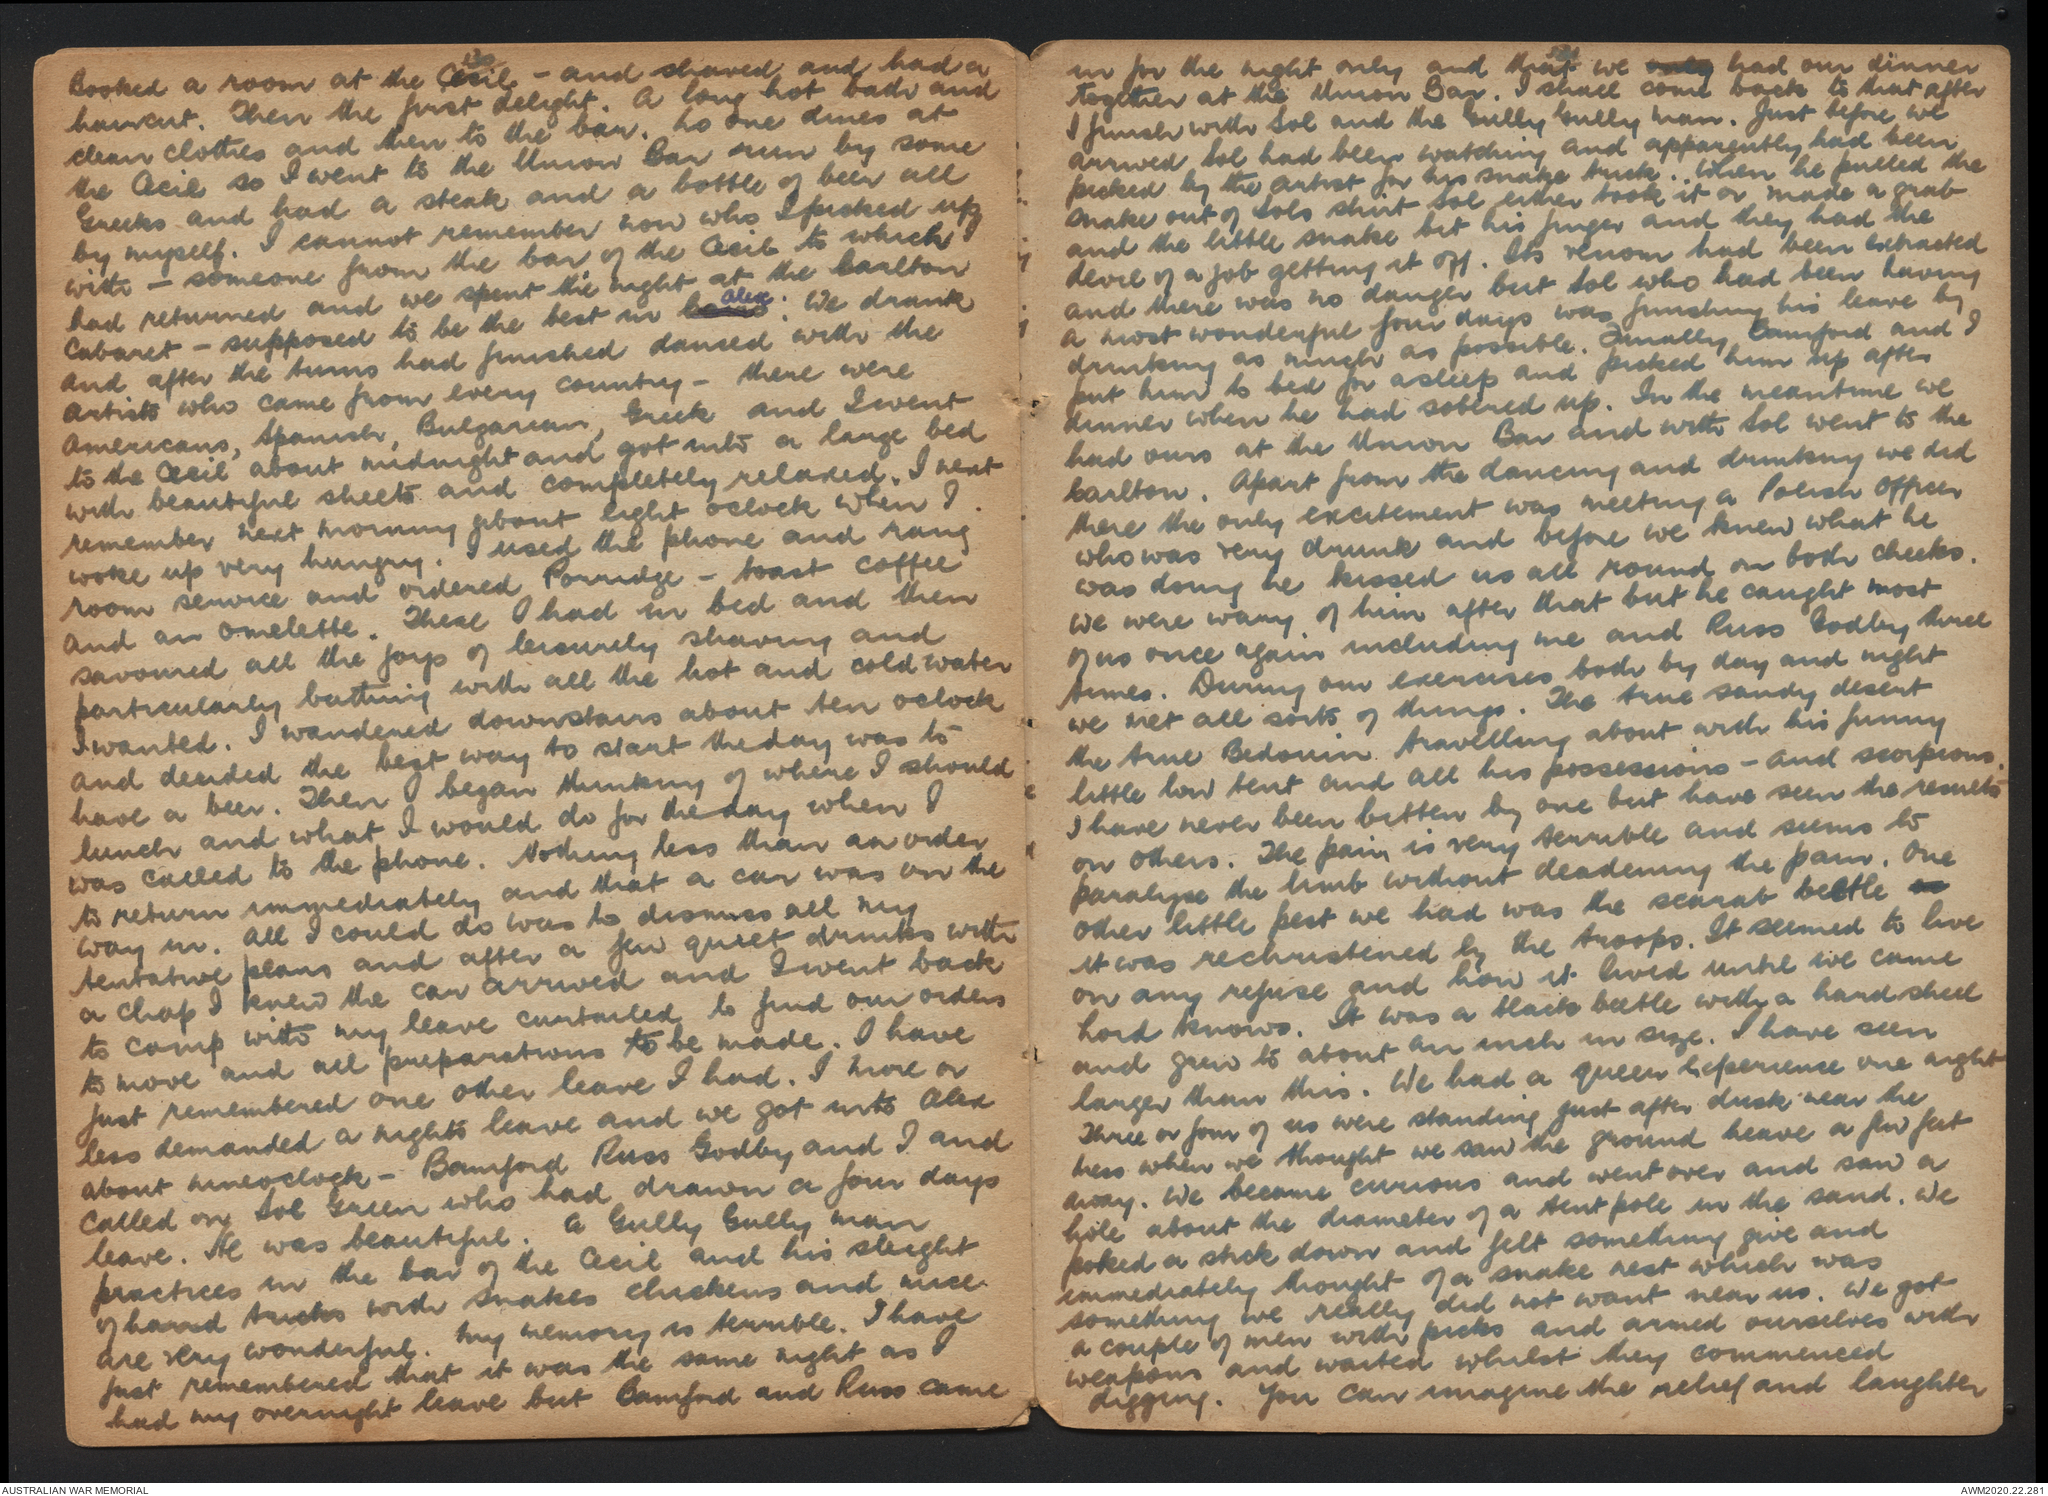 Booked a room at the Cecil - and shaved and had a
haircut. Then the first delight. A long hot bath and
clean clothes and then to the bar. No one dines at
the Cecil so I went to the Union Bar run by some
Greeks and had a steak and a bottle of beer all
by myself. I cannot remember now who I picked up
with - someone from the bar of the Cecil to which I
had returned and we spent the night at the Carlton
Cabaret - supposed to be the best in Alex. We drank
and after the turns had finished danced with the
artists who came from every country - there were
Americans, Spanish, Bulgarian, Greek and I went
to the Cecil about midnight and got into a large bed
with beautiful sheets and completely relaxed. I next
remember next morning about eight oclock when I
woke up very hungry. I used the phone and rang
room service and ordered Porridge - toast coffee
and an omelette. These I had in bed and then
savoured all the joys of leisurely shaving and
particularly bathing with all the hot and cold water
I wanted. I wandered downstairs about ten oclock
and decided the best way to start the day was to
have a beer. Then I began thinking of where I should
lunch and what I would do for the day when I
was called to the phone. Nothing less than an order
to return immediately and that a car was on the
way in. All I could do was to dismiss all my
tentative plans and after a few quiet drinks with
a chap I knew the car arrived and I went back
to camp with my leave curtailed to find our orders
to move and all preparations to be made. I have
just remembered one other leave I had. I more or
less demanded a nights leave and we got into Alex
about nineoclock - Bamford Russ Godby and I and
called on Sol Green who had drawn a four days
leave. He was beautiful. A Gully Gully man
practices in the bar of the Cecil and his sleight
of hand tricks with snakes chickens and mice
are very wonderful. My memory is terrible. I have
just remembered that it was the same night as I
had my overnight leave but Bamford and Russ came
in for the night only and that we had our dinner
together at the Union Bar. I shall come back to that after
I finish with Sol and the Gully Gully man. Just before we
arrived Sol had been watching and apparently had been
picked by the artist for his snake trick. When he pulled the
snake out of Sols shirt Sol either took it or made a grab
and the little snake bit his finger and they had the
devil of a job getting it off. Its venom had been extracted
and there was no danger but Sol who had been having
a most wonderful four days was finishing his leave by
drinking as much as possible. Finally Bamford and I
put him to bed for a sleep and picked him up after
dinner when he had sobered up. In the meantime we
had ours at the Union Bar and with Sol went to the
Carlton. Apart from the dancing and drinking we did
there the only excitement was meeting a Polish Officer
who was very drunk and before we knew what he
was doing he kissed us all round on both cheeks.
We were wary of him after that but he caught most
of us once again including me and Russ Godby three
times. During our exercises both by day and night
we met all sorts of things. The true sandy desert
the true Bedouin travelling about with his funny
little low tent and all his possessions - and scorpions.
I have never been bitten by one but have seen the results
on others. The pain is very terrible and seems to
paralyse the limb without deadening the pain. One
other little pest we had was the scarab beetle as
it was rechristened by the troops. It seemed to live
on any refuse and how it lived until we came
Lord knows. It was a black beetle with a hard shell
and grew to about an inch in size. I have seen
larger than this. We had a queer experience one night
Three or four of us were standing just after dusk near the
mess when we thought we saw the ground heave a few feet
away. We became curious and went over and saw a
hole about the diameter of a tent pole in the sand. We
poked a stick down and felt something give and
immediately thought of a snake nest which was
something we really did not want near us. We got
a couple of men with picks and armed ourselves with
weapons and waited whilst they commenced
digging. You can imagine the relief and laughter
AUSTRALIAN WAR MEMORIAL
AWM2020.22.281